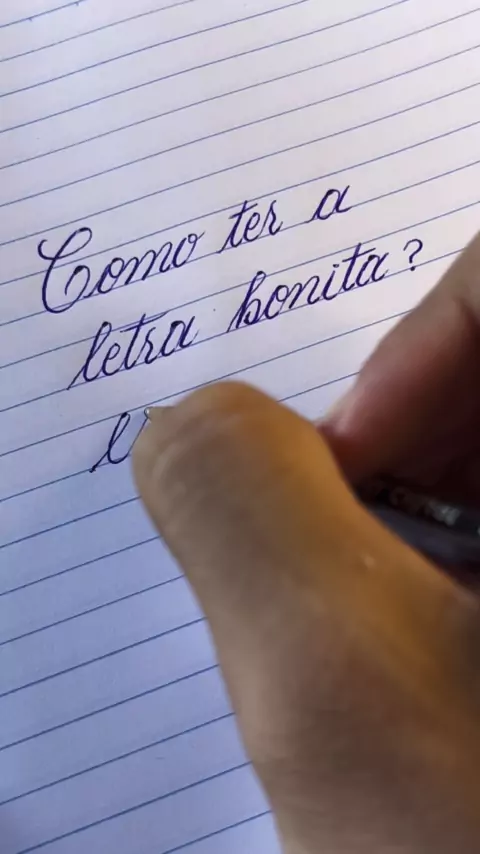 Como ter a
letra bonita?